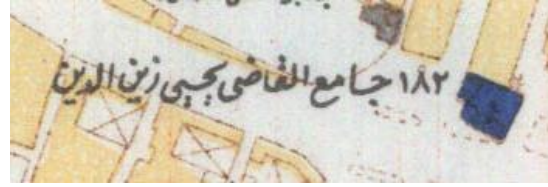 ١٨٢ جامع القاضى يحيى زين الدين